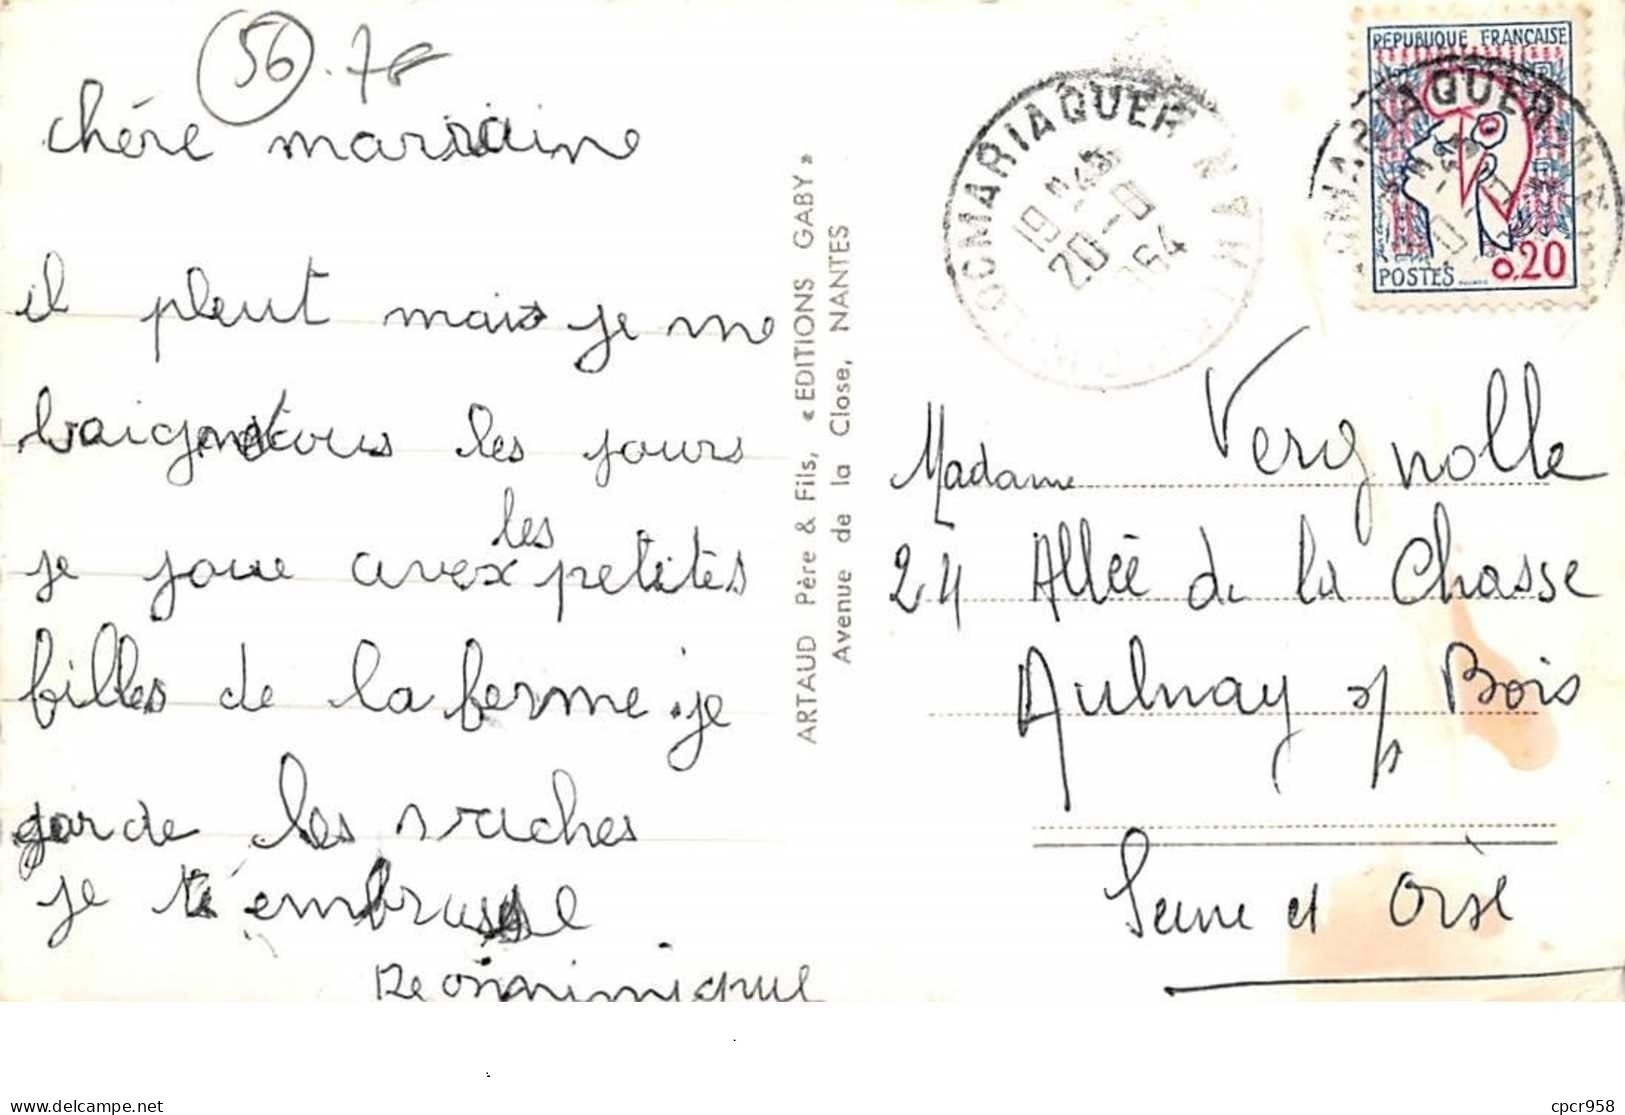 56.78
chère marraine
il pleut mais je me
baigne tous les jours
je joue avex les petites
filles de la ferme je
garde les vaches
je t'embrasse
Dominique
ARTAUD Père & Fils, « EDITIONS GABY »
Avenue de la Close, NANTES
LOCMARIAQUER MORBIHAN
19H45
20-8
1964
REPUBLIQUE FRANÇAISE
POSTES 0,20
Madame Vergnolle
24 Allée de la Chasse
Aulnay s/ Bois
Seine et Oise
delcampe.net
cpcr958